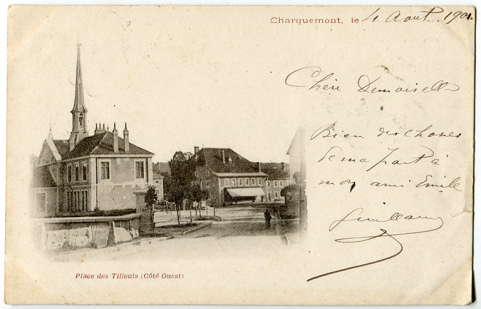 Charquemont, le 4 Aout 1901
Chère Demoiselle
Bien des choses
de ma part à
mon ami Emile
Guillaume
Place des Tilleuls (Côté Ouest)